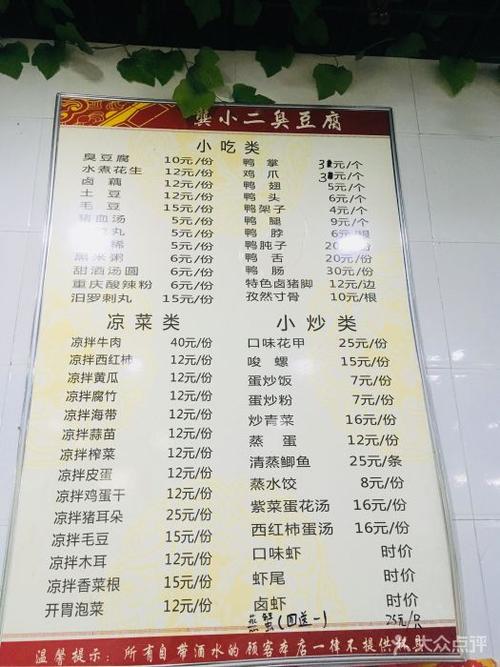 龚小二臭豆腐
小吃类
臭豆腐 10元/份 鸭掌 3元/个
水煮花生 12元/份 鸡爪 3元/个
卤藕 12元/份 鸭翅 5元/个
土豆 12元/份 鸭头 6元/个
毛豆 15元/份 鸭架子 4元/个
猪血汤 5元/份 鸭腿 9元/个
丸 5元/份 鸭脖 6元/根
稀 5元/份 鸭肫子 20元/份
黑米粥 6元/份 鸭舌 20元/份
甜酒汤圆 6元/份 鸭肠 30元/份
重庆酸辣粉 6元/份 特色卤猪脚 12元/边
汨罗刺丸 15元/份 孜然寸骨 10元/根
凉菜类 小炒类
凉拌牛肉 40元/份 口味花甲 25元/份
凉拌西红柿 12元/份 唆螺 15元/份
凉拌黄瓜 12元/份 蛋炒饭 7元/份
凉拌腐竹 12元/份 蛋炒粉 7元/份
凉拌海带 12元/份 炒青菜 16元/份
凉拌蒜苗 12元/份 蒸蛋 12元/份
凉拌榨菜 12元/份 清蒸鲫鱼 25元/条
凉拌皮蛋 12元/份 蒸水饺 8元/份
凉拌鸡蛋干 12元/份 紫菜蛋花汤 16元/份
凉拌猪耳朵 25元/份 西红柿蛋汤 16元/份
凉拌毛豆 15元/份 口味虾 时价
凉拌木耳 12元/份 虾尾 时价
凉拌香菜根 15元/份 卤虾 时价
开胃泡菜 12元/份 蒸蟹(四送一) 25元/只
温馨提示:所有自带酒水的顾客本店一律不提供
大众点评